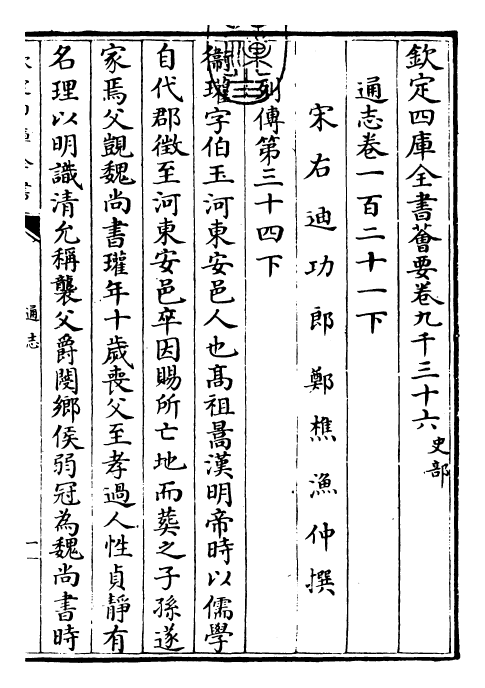 欽定四庫全書薈要卷九千三十六史部
通志卷一百二十一下
宋右迪功郎鄭樵漁仲撰
列傳第三十四下
衞瓘字伯玉河東安邑人也髙祖暠漢明帝時以儒學
自代郡徴至河東安邑卒因賜所亡地而葬之子孫遂
家焉父覬魏尚書瓘年十歳喪父至孝過人性貞靜有
名理以明識清允稱襲父爵閿鄉侯弱冠為魏尚書時
通志
一